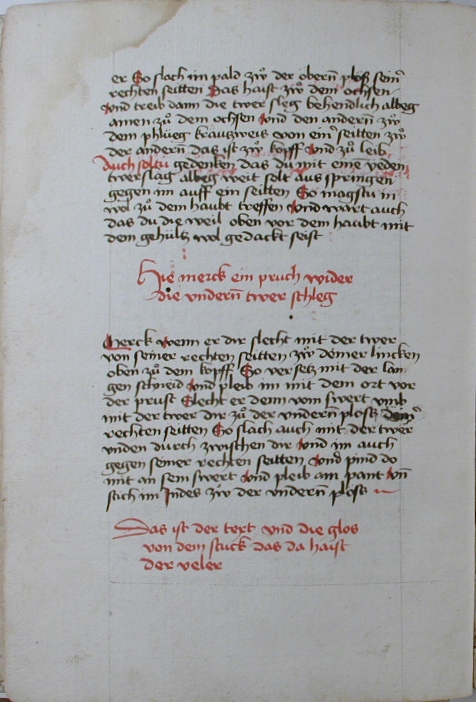 er So slach im pald zw der obern̄ ploß seinr̄
rechten seitten Das haist zw dem ochsen
Vnd treib dann die twer sleg behendlich albeg
ainen zů dem ochsen Vnd den andern̄ zw
dem phlueg krauzweis vonn ein̄ seitten zw
der andern̄ das ist zw kopff Vnd zů leib
Auch soltu gedenken das du mit eine yeden
twerslag albeg weit solt aus springen
gegen im auff ein seitten So magstu in
wol zů dem haubt treffen Vnd wart auch
das du die weil oben vor dem haubt mit
dem gehültz wol gedackt seist
Hie merck ein pruch wider
die vndern̄ twer schleg
Merck wenn er dir slecht mit der twer
von seiner rechten seitten zw deiner lincken
oben zů dem kopff So versetz mit der lan
gen schneid Vnd pleib im mit dem ort vor
der prust Slecht er denn vom swert vmb
mit der twer dir zů der vndern̄ plosß deinr̄
rechten seitten So slach auch mit der twer
vnden durch zwischen dir Vnd im auch
gegen seiner rechten seitten Vnd pind do
mit an sein swert Vnd pleib am pant Vn̄
stich im Indes zw der vndern̄ plosß
Das ist der text vnd die glos
von dem stuck das da haist
der veler